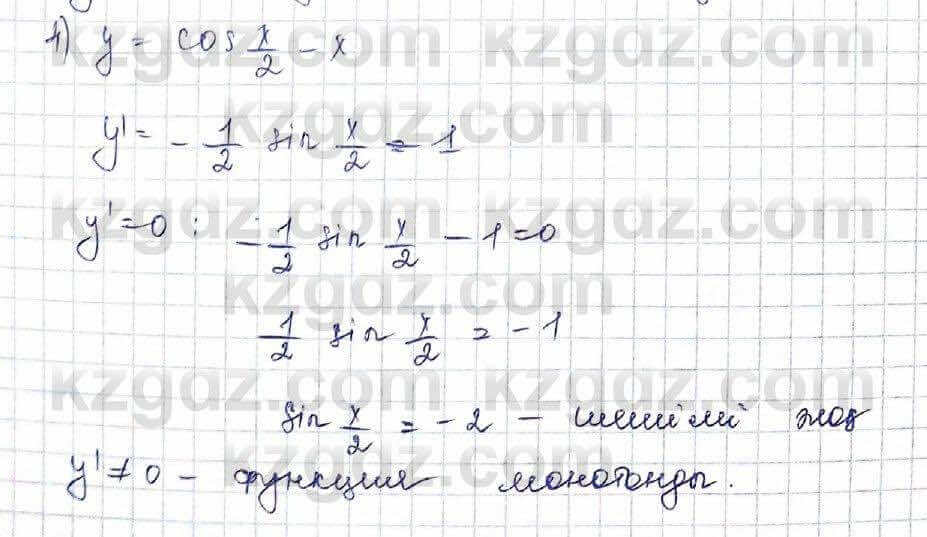 1) y = cos x/2 - x
y' = - 1/2 sin x/2 = 1
y' = 0 : - 1/2 sin x/2 - 1 = 0
1/2 sin x/2 = - 1
sin x/2 = - 2 - шешімі жоқ
y' ≠ 0 - функция монотонды.
kzgdz.com kzgdz.com
kzgdz.com
kzgdz.com kzgdz.com
kzgdz.com
kzgdz.com kzgdz.com
kzgdz.com